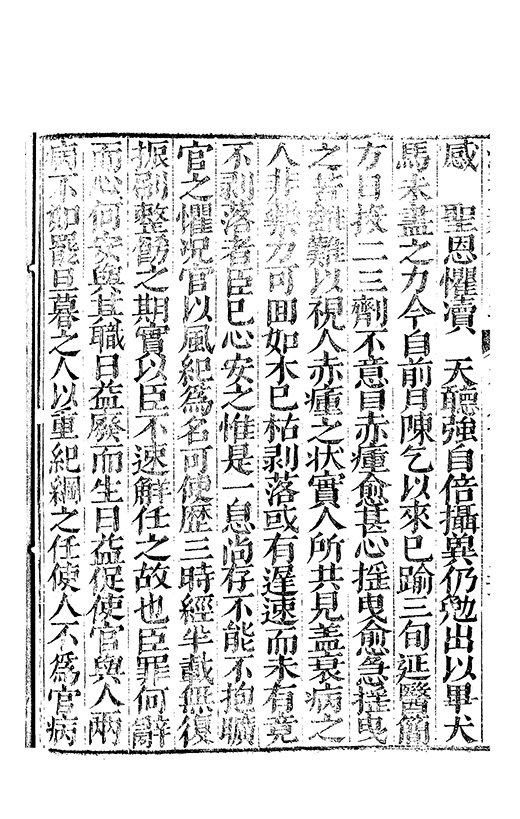 感　聖恩懼瀆　天聽強自倍攝異仍勉出以畢犬
馬未盡之力今自前月陳乞以來已踰三旬延醫簡
方日投二三劑不意目赤瘇愈甚心揺曳愈急揺曳
之苦難以視人赤瘇之狀實人所共見盖衰病之
人非藥力可回如木已枯剥落或有遲速而未有竟
不剥落者臣已心安之惟是一息尚存不能不抱曠
官之懼况官以風紀為名可使歴三時經半載無復
振刷整飭之期實以臣不速解任之故也臣罪何辭
而心何安與其職日益廢而生日益促使官與人兩
病不如罷旦暮之人以重紀綱之任使人不為官病